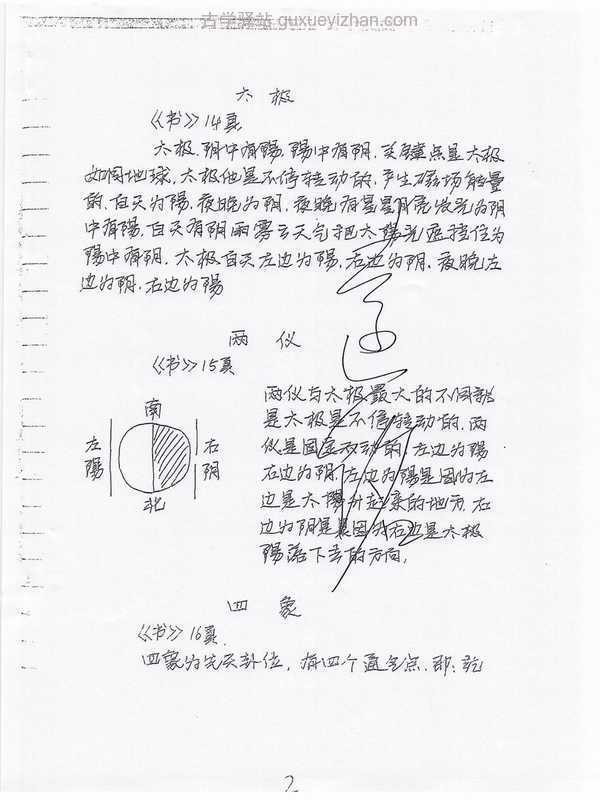 古学驿站 guxueyizhan.com
太 极
《书》14页
太极，阴中有陽，陽中有阴，关键点是太极
如同地球，太极也是不停转动的，产生磁场能量
的，白天为陽，夜晚为阴，夜晚有星星月亮发光为阴
中有陽，白天有阴雨雾云天气把太陽光遮挡住为
陽中有阴，太极白天左边为陽，右边为阴，夜晚左
边为阴，右边为陽
两 仪
《书》15页
南
左 右
陽 阴
北
两仪与太极最大的不同就
是太极是不停转动的，两
仪是固定不动的，左边为陽
右边为阴，左边为陽是因为左
边是太陽升起来的地方，右
边为阴是因为右边是太极
陽落下去的方向，
四 象
《书》16页
四象为先天卦位，有四个点，即：乾
2